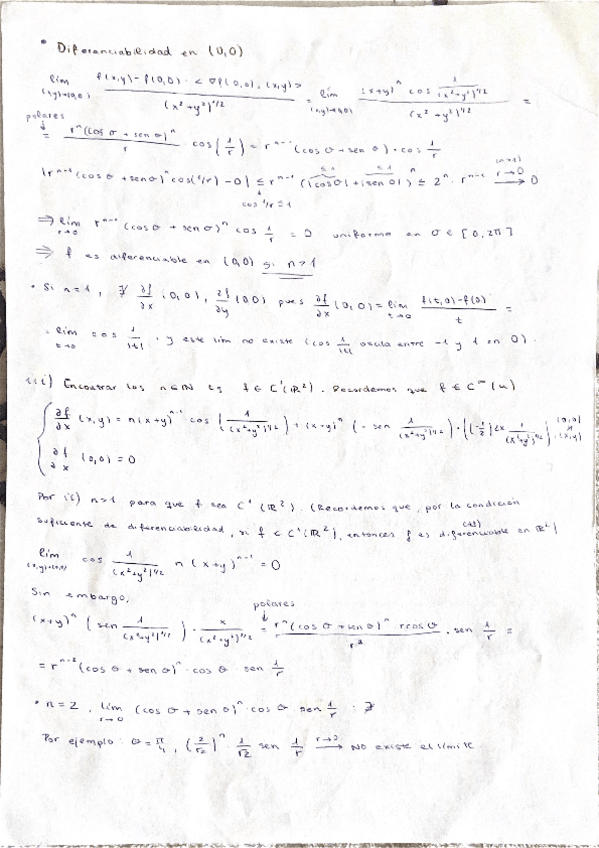 • Diferenciabilidad en (0,0)
lim (x,y)→(0,0) f(x,y) - f(0,0) - <∇f(0,0), (x,y)> / (x²+y²)^1/2 = lim (x,y)→(0,0) (x+y)^n cos 1/(x²+y²)^1/2 / (x²+y²)^1/2 =
polares
= r^n (cos σ + sen σ)^n / r · cos(1/r) = r^n-1 (cos σ + sen σ)^n · cos 1/r
|r^n-1 (cos σ + sen σ)^n cos(1/r) - 0| ≤ r^n-1 (|cos σ| + |sen σ|)^n ≤ 2^n · r^n-1 → 0
cos 1/r ≤ 1
⇒ lim r→0 r^n-1 (cos σ + sen σ)^n cos 1/r = 0 uniforme en σ ∈ [0,2π]
⇒ f es diferenciable en (0,0) si n>1
• Si n=1, ∄ ∂f/∂x (0,0), ∂f/∂y (0,0) pues ∂f/∂x (0,0) = lim t→0 f(t,0)-f(0)/t =
= lim t→0 cos 1/|t| · y este lim no existe (cos 1/|t| oscila entre -1 y 1 en 0).
iii) Encontrar los n∈ℕ tq f ∈ C¹(ℝ²). Recordemos que f ∈ C^∞(u)
∂f/∂x (x,y) = n(x+y)^n-1 cos(1/(x²+y²)^1/2) + (x+y)^n (-sen 1/(x²+y²)^1/2) · ((-1/2) 2x 1/(x²+y²)^3/2)
∂f/∂x (0,0) = 0
Por ii) n>1 para que f sea C¹(ℝ²). (Recordemos que, por la condición
suficiente de diferenciabilidad, si f ∈ C¹(ℝ²), entonces f es diferenciable en ℝ²)
lim (x,y)→(0,0) cos 1/(x²+y²)^1/2 n(x+y)^n-1 = 0
Sin embargo,
polares
(x+y)^n (sen 1/(x²+y²)^1/2) · x/(x²+y²)^3/2 = r^n (cos σ + sen σ)^n r cos σ / r³ · sen 1/r =
= r^n-2 (cos σ + sen σ)^n · cos σ · sen 1/r
• n=2, lim r→0 (cos σ + sen σ)^n · cos σ sen 1/r : ∄
Por ejemplo: σ = π/4, (2/√2)^n · 1/√2 sen 1/r r→0 → No existe el límite.